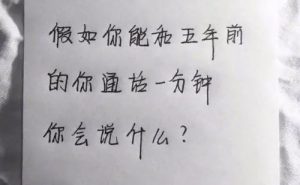 假如你能和五年前
的你通话一分钟
你会说什么?